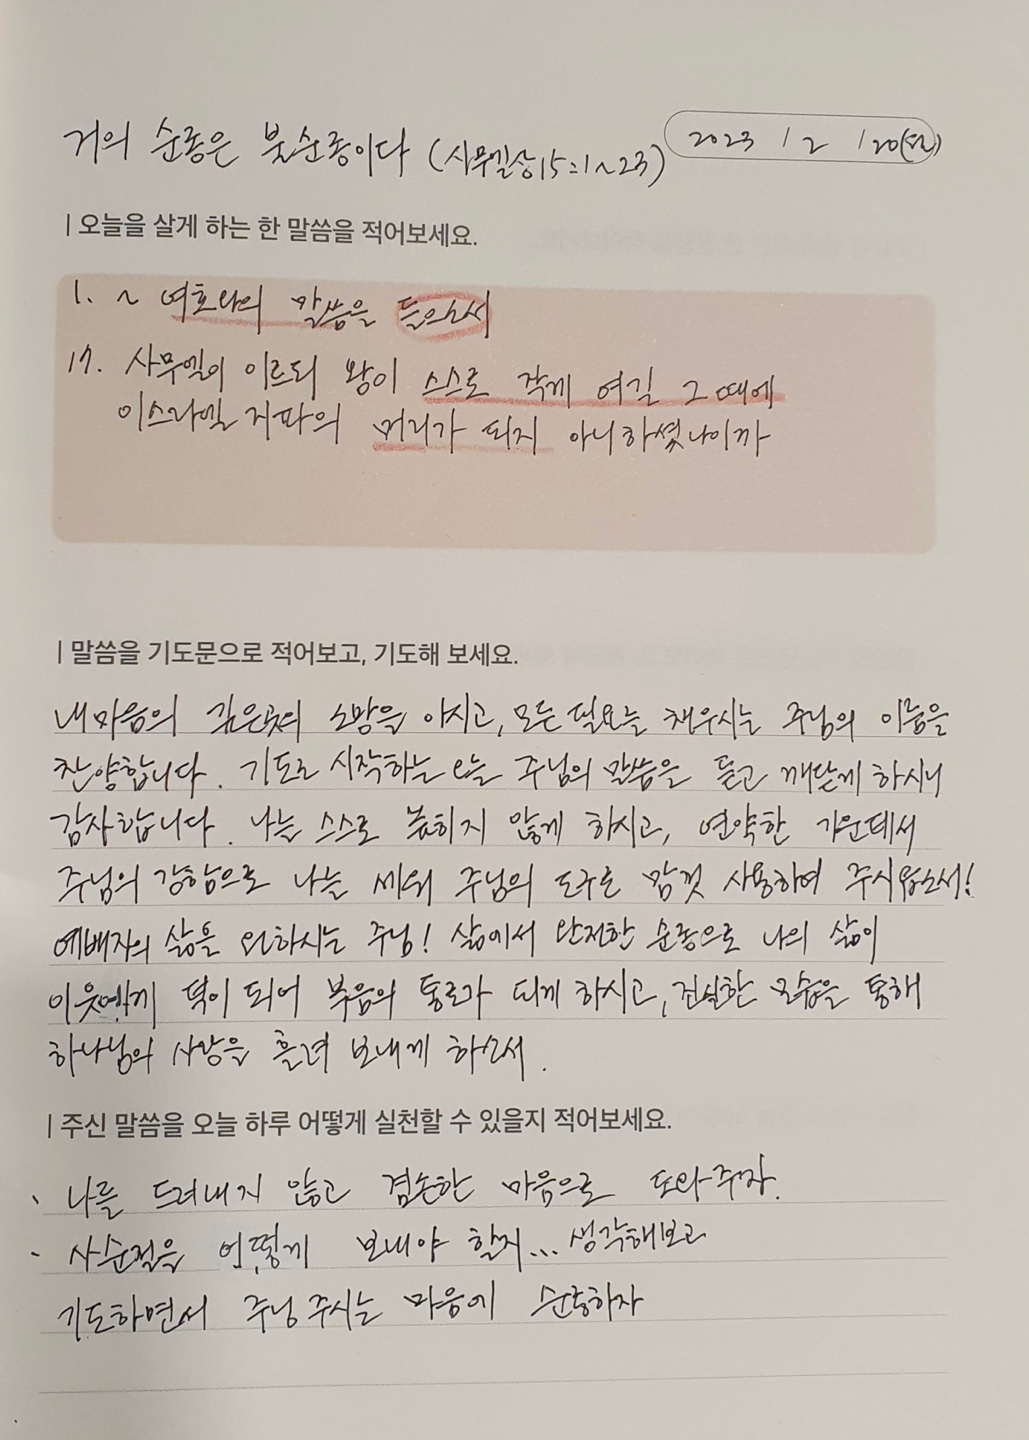 거의 순종은 불순종이다 (사무엘상15:1~23) 2023 / 2 / 20(월)
| 오늘을 살게 하는 한 말씀을 적어보세요.
1. ~ 여호와의 말씀을 들으소서
17. 사무엘이 이르되 왕이 스스로 작게 여길 그 때에
이스라엘 지파의 머리가 되지 아니하셨나이까
| 말씀을 기도문으로 적어보고, 기도해 보세요.
내 마음의 깊은곳의 소망을 아시고, 모든 필요를 채우시는 주님의 이름을
찬양합니다. 기도로 시작하는 오늘 주님의 말씀을 듣고 깨닫게 하시니
감사합니다. 나는 스스로 높히지 않게 하시고, 연약한 가운데서
주님의 강함으로 나를 세워 주님의 도구로 맘껏 사용하여 주시옵소서!
예배자의 삶을 원하시는 주님! 삶에서 완전한 순종으로 나의 삶이
이웃에게 덕이 되어 복음의 통로가 되게 하시고, 진실한 모습을 통해
하나님의 사랑을 흘려 보내게 하소서.
| 주신 말씀을 오늘 하루 어떻게 실천할 수 있을지 적어보세요.
· 나를 드러내지 않고 겸손한 마음으로 도와주자.
- 사순절을 어떻게 보내야 할지... 생각해보고
기도하면서 주님 주시는 마음에 순종하자